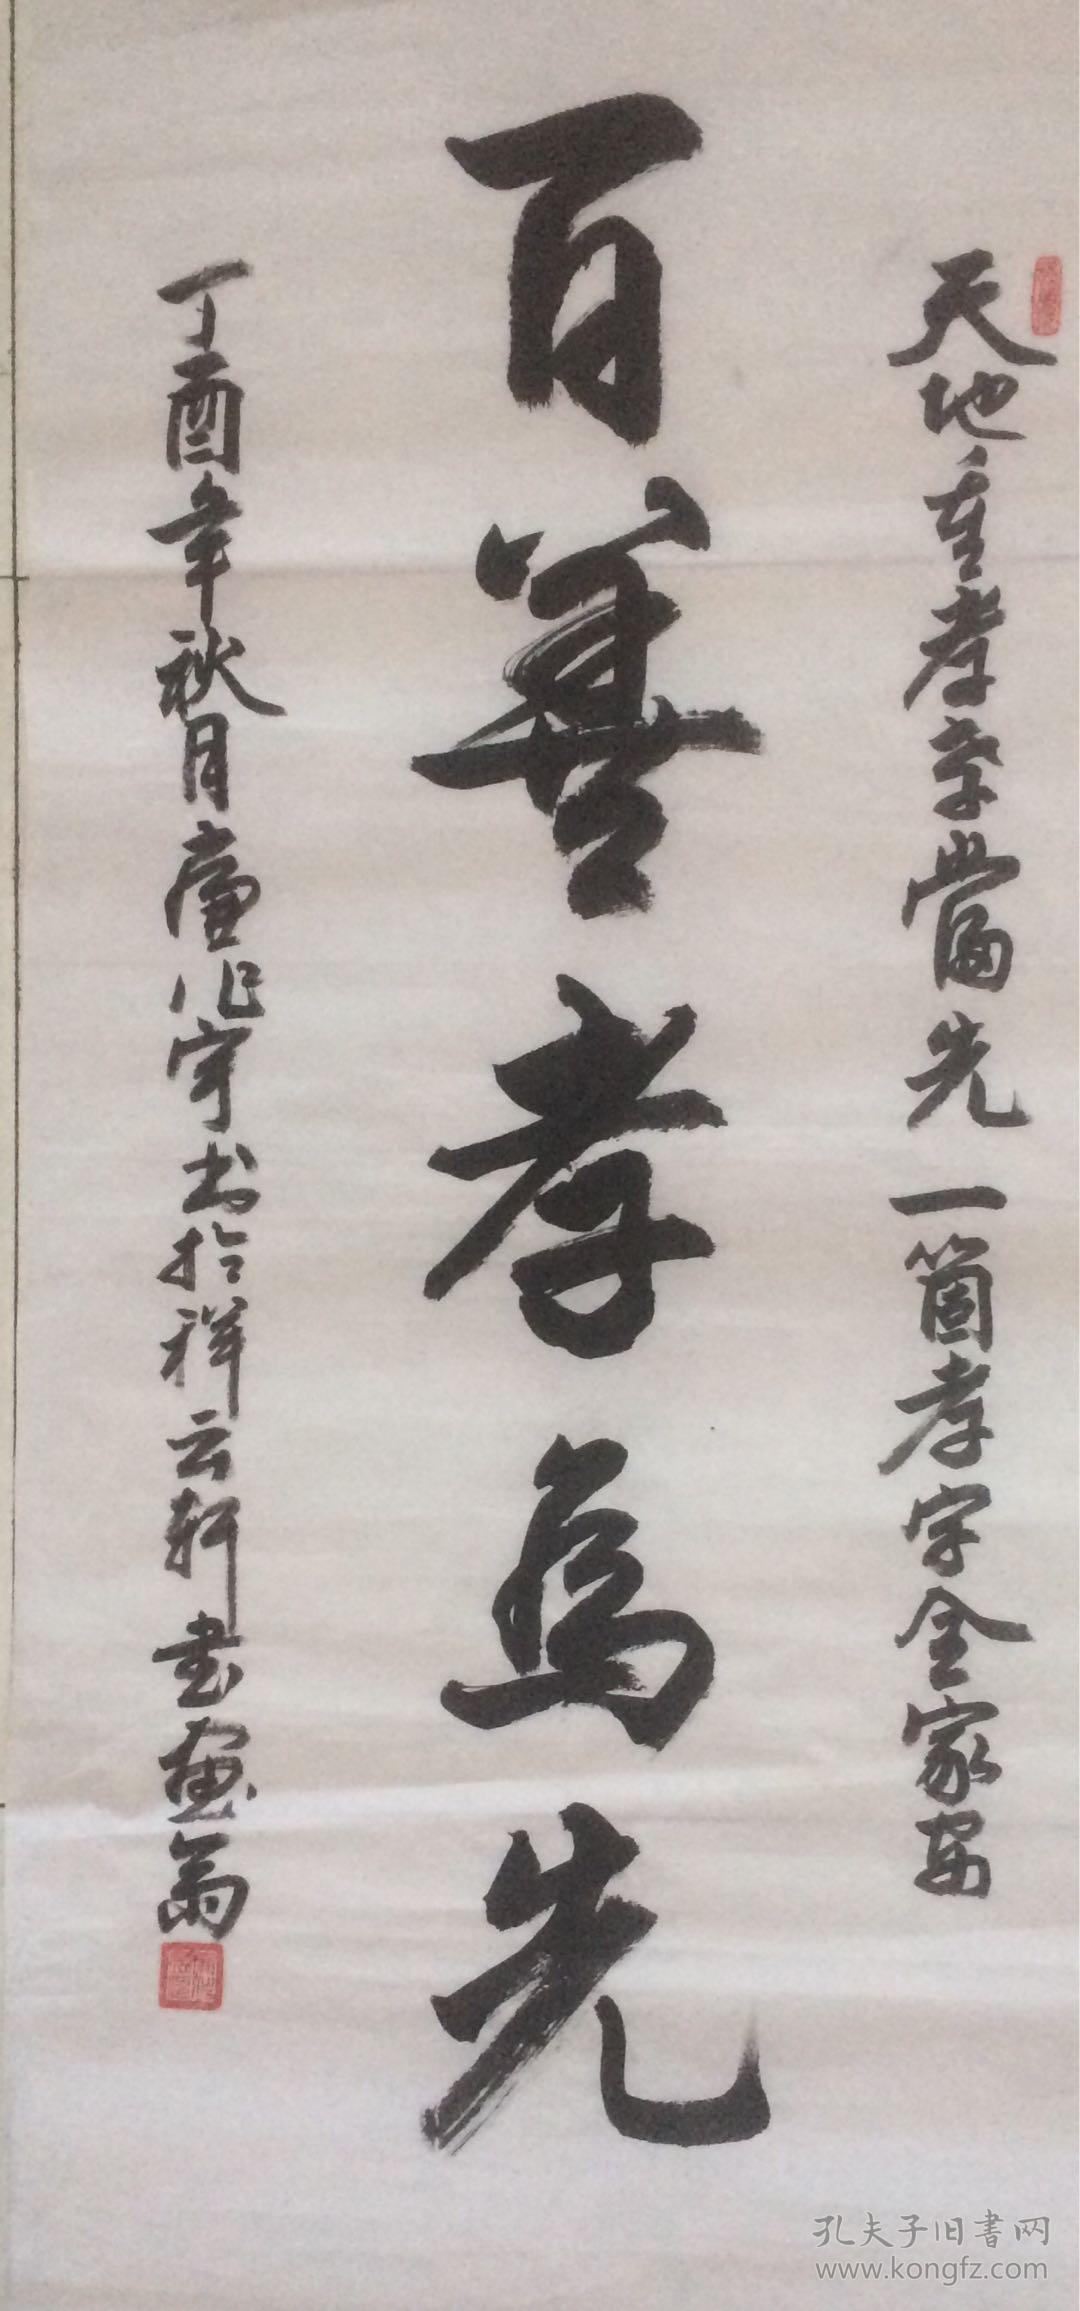 天地重孝孝當先一箇孝字全家安
百善孝為先
丁酉年秋月 书於祥云轩书畫斋
孔夫子旧書网
www.kongfz.com